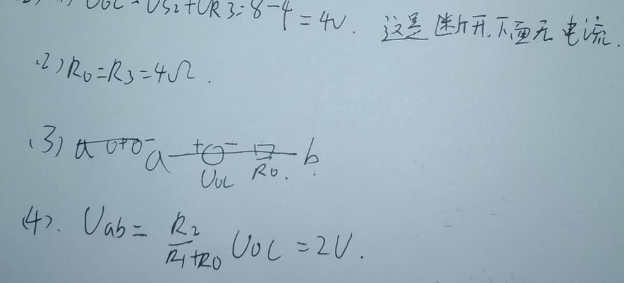 UOC = US2+UR3=8-4=4V. 这是断开.下面无电流.
(2) R0=R3=4Ω.
(3) a + - b
UOC R0.
(4). Uab= R2/R1+R0 UOC = 2V.